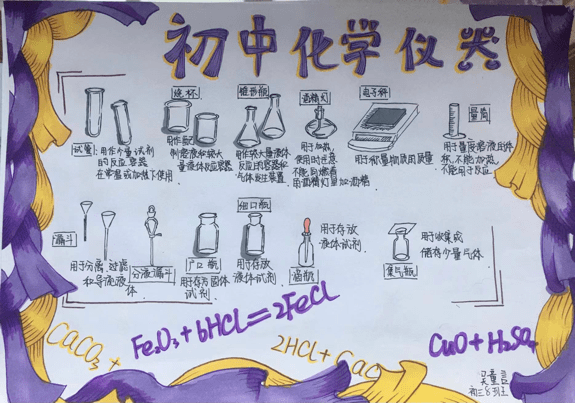 初中化学仪器
试管: 用作少量试剂
的反应容器
在常温或加热下使用
烧杯
用作配
制溶液和较大
量液体反应容器
锥形瓶
用作较大量液体
反应的容器和
气体发生装置
酒精灯
用于加热
使用时注意
不能向燃着
的酒精灯里加酒精
电子秤
用于称量物质用质量
量筒
用于量度溶液的体
积,不能加热,
不能用于反应
漏斗
用于分离、过滤
和导流液
体
分液漏斗
广口瓶
用于存方固体
试剂
细口瓶
用于存放
液体试剂
滴瓶
用于存放
液体试剂
集气瓶
用于收集或
储存少量气体
CaCO₃ +
Fe₂O₃ + 6HCl = 2FeCl
2HCl + Cac
CuO + H₂SO₄
初三8班